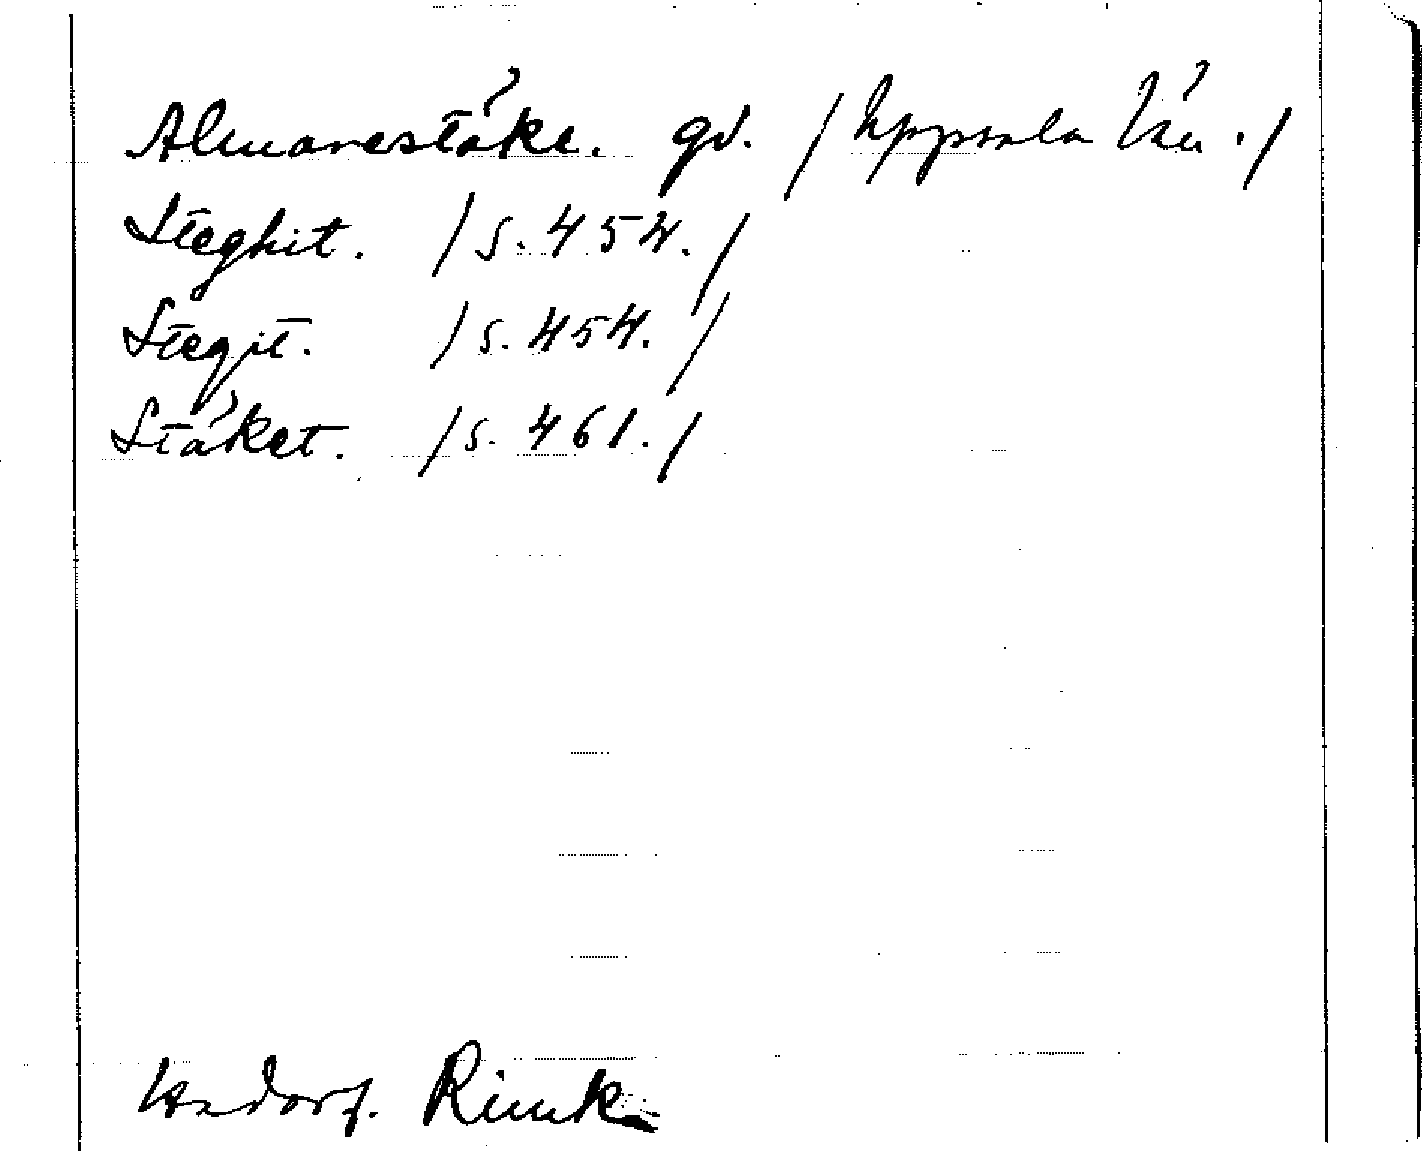 Almarestäke. gd. / Uppsala län. /
Steghit. / s. 454. /
Stegit. / s. 454. /
Stäket. / s. 461. /
Rimk